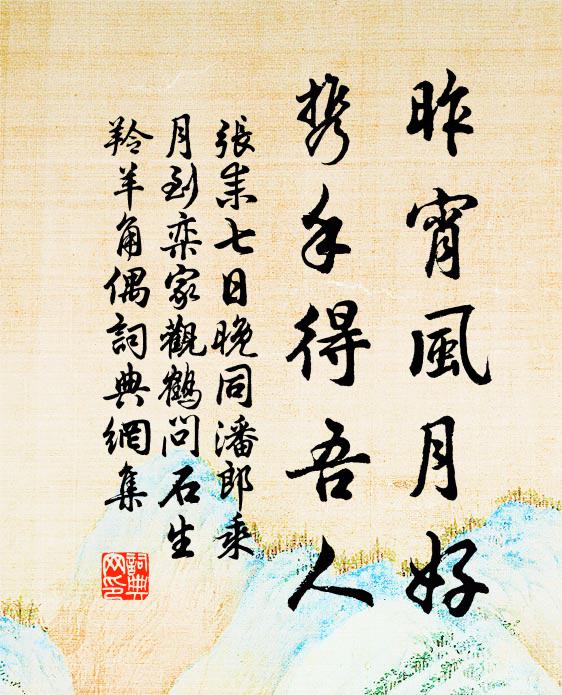 昨宵風月好
携手得吾人
張耒七日晚同潘郎乘
月到栾家觀鶴問石生
羚羊角偶詞典網集
詞典网印